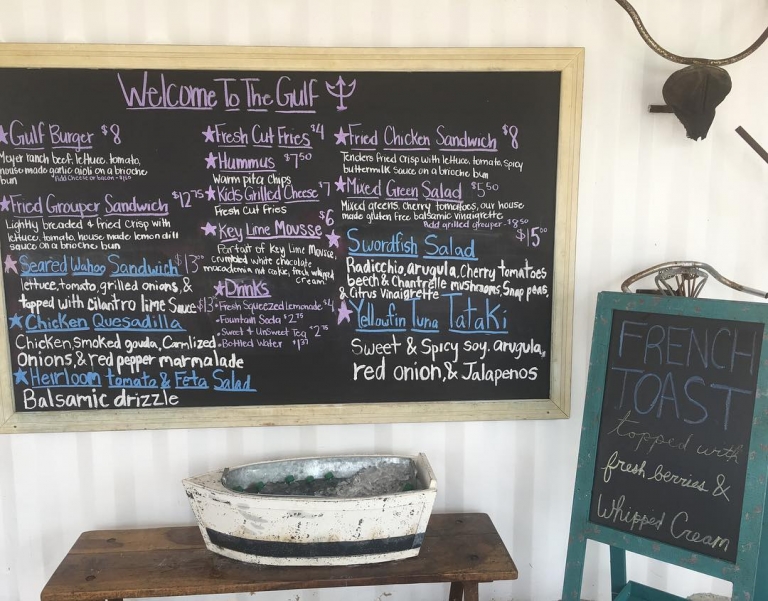 Welcome To The Gulf
Gulf Burger $8
Meyer ranch beef, lettuce, tomato,
house made garlic aioli on a brioche
bun
*Add Cheese or bacon - $1.50
Fried Grouper Sandwich $12.75
Lightly breaded & Fried Crisp with
lettuce, tomato, house made lemon dill
sauce on a brioche bun
Seared Wahoo Sandwich $13.00
lettuce, tomato, grilled onions, &
topped with cilantro lime Sauce
Chicken Quesadilla $13
Chicken, smoked gouda, Carmlized
Onions, & red pepper marmalade
Heirloom tomato & Feta Salad
Balsamic drizzle
Fresh Cut Fries $4
Hummus $7.50
Warm pita Chips
Kids Grilled Cheese $7
Fresh Cut Fries
Key Lime Mousse $6
Parfait of Key Lime Mousse,
crumbled white chocolate
macadamia nut cookie, fresh whipped
cream
Drinks
Fresh Squeezed Lemonade $4
Fountain Soda $2.75
Sweet & UnSweet Tea $2.75
Bottled Water
Fried Chicken Sandwich $8
Tenders Fried Crisp with lettuce, tomato, spicy
buttermilk sauce on a brioche bun
Mixed Green Salad $5.50
Mixed greens, cherry tomatoes, our house
made gluten free balsamic vinaigrette
Add grilled grouper - $8.50
Swordfish Salad $15.00
Radicchio arugula, Cherry tomatoes
beech & Chantrelle mushrooms, Snap peas,
& Citrus Vinaigrette
Yellowfin Tuna Tataki
Sweet & Spicy soy, arugula,
red onion, & Jalapenos
FRENCH
TOAST
topped with
fresh berries &
Whipped Cream